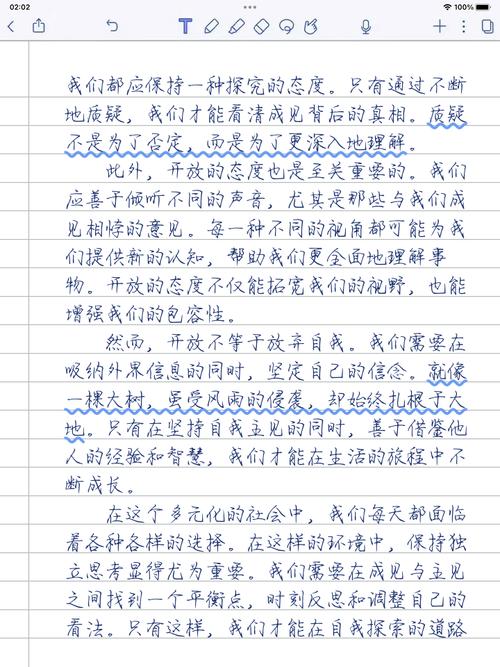 02:02
100%
T
我们都应保持一种探究的态度。只有通过不断
地质疑，我们才能看清成见背后的真相。质疑
不是为了否定，而是为了更深入地理解。
此外，开放的态度也是至关重要的。我们
应善于倾听不同的声音，尤其是那些与我们成
见相悖的意见。每一种不同的视角都可能为我
们提供新的认知，帮助我们更全面地理解事
物。开放的态度不仅能拓宽我们的视野，也能
增强我们的包容性。
然而，开放不等于放弃自我。我们需要在
吸纳外界信息的同时，坚定自己的信念。就像
一棵大树，虽受风雨的侵袭，却始终扎根于大
地。只有在坚持自我主见的同时，善于借鉴他
人的经验和智慧，我们才能在生活的旅程中不
断成长。
在这个多元化的社会中，我们每天都面临
着各种各样的选择。在这样的环境中，保持独
立思考显得尤为重要。我们需要在成见与主见
之间找到一个平衡点，时刻反思和调整自己的
看法。只有这样，我们才能在自我探索的道路